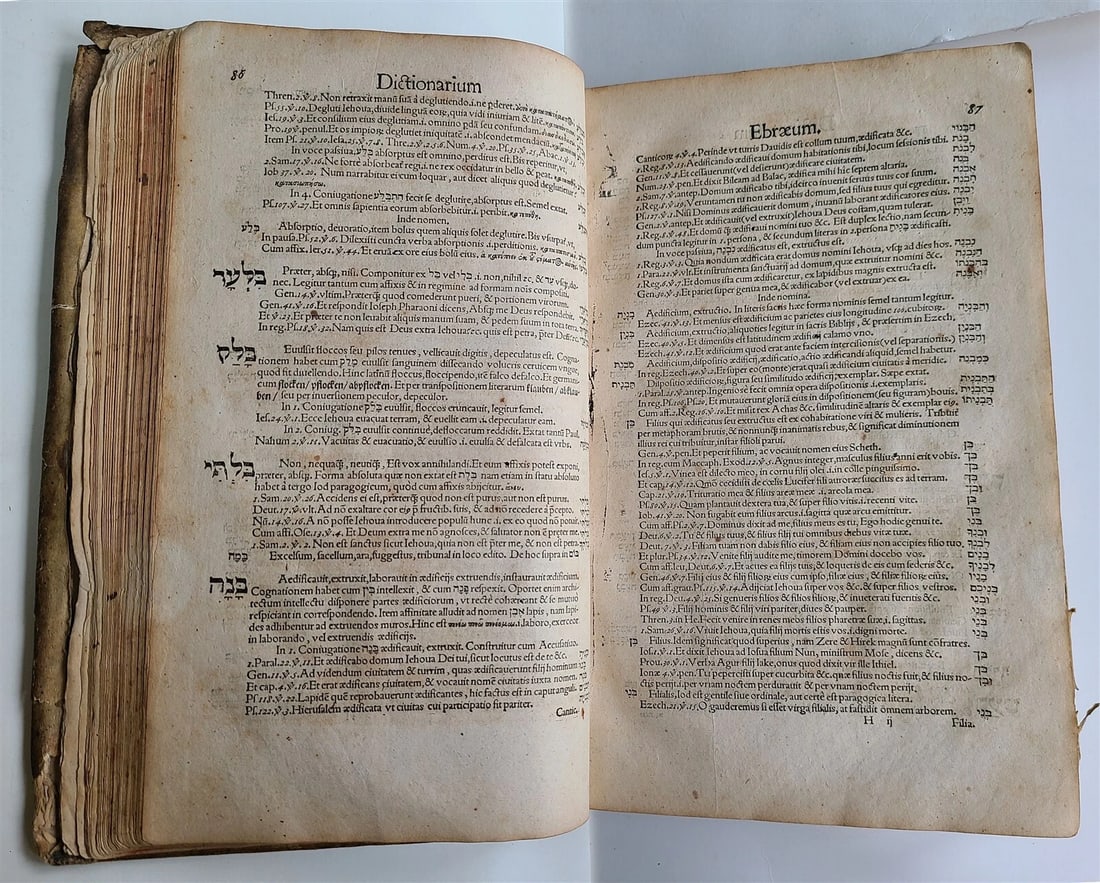 86
Dictionarium
Thren.2.ꝟ.8. Non retraxit manũ suã à deglutiendo.i.ne ꝑderet.
Ps.55.ꝟ.10. Degluti Iehoua, diuide linguã eorũ, quia vidi iniuriam & litẽ
Ies.19.ꝟ.3. Et consilium eius deglutiam.i. omnino ꝑdã seu confundam.
In voce passiua, absorptus est omnino, perditus est. Bis reperitur, vt,
2.Sam.17.ꝟ.16. Ne fortè absorbeať regi.i. ne rex occidatur in bello & peat.
Iob 37.ꝟ.20. Num narrabitur ei cum loquar, aut dicet aliquis quod deglutietur
In 4. Coniugatione הִתְבַּלַּע fecit se deglutire, absorptus est. Semel extat.
Ps.107.ꝟ.27. Et omnis sapientia eorum absorbebitur.i. peribit.
Inde nomen.
בֶּלַע Absorptio, deuoratio, item bolus quem aliquis solet deglutire. Bis vsurpať, vt,
In pausa. Ps.52.ꝟ.6. Dilexisti cuncta verba absorptionis.i. perditionis.
Cum affix. Ier.51.ꝟ.44. Et eruã ex ore eius bolum eius.
בִּלְעֲדֵי Præter, absq;, nisi. Componitur ex בַּל vel בְּלִי .i. non, nihil &c. & עַד vsq;, donec. Legitur tantum cum affixis & in regimine ad formam nois compositi.
Gen.14.ꝟ.vltim. Præterq̃ quod comederunt pueri, & portionem virorum.
Gen.41.ꝟ.16. Et respondit Ioseph Pharaoni dicens, Absq; me Deus respondebit.
Et ꝟ.23. Et præter te non leuabit aliquis manum suam, & pedem suum in tota terra.
In reg. Ps.18.ꝟ.32. Nam quis est Deus extra Iehoua &c. quis est petra, pter Deũ
בָּלַק Euulsit floccos seu pilos tenues, vellicauit digitis, depeculatus est. Cognationem
habet cum פָּלַק euulsit sanguinem dissecando volucris ceruicem vngue,
quod fit diuellendo. Hinc latinũ floccus, floccipendo, ire falco defalco. Et germani-
cum flocken / pflocken / abpflocken. Et per transpositionem literarum
ben / seu per inuersionem peculor, depeculor.
In 1. Coniugatione בָּלַק euulsit, floccos eruncauit, legitur semel.
Ies.24.ꝟ.1. Ecce Iehoua euacuat terram, & euellit eam.i. depeculatur eam.
In 2. Coniug. בִּלֵּק euulsit continuè, desfloccatum reddidit. Extat tantũ Paul,
Nahum 2.ꝟ.11. Vacuitas & euacuatio, & euulsio.i. euulsa & defalcata est vrbs.
בִּלְתִּי Non, nequaq̃, neutiq̃, Est vox annihilandi. Et eum affixis potest exponi,
præter, absq;. Forma absoluta quæ non extat est בֵּלֶת nam etiam in statu absoluto
habet à tergo Iod paragogicum, quod cum affixis abijcitur.
1.Sam.20.ꝟ.26. Accidens ei est, præterq̃ quod non est purus, aut non est purus.
Deut.17.ꝟ.vlt. Ad nõ exaltare cor eiꝰ p̃ fructib. suis, & ad nõ recedere à p̃cepto.
Nũ.14.ꝟ.16. A nõ posse Iehoua introducere populũ hunc.i. ex eo quod nõ potuit.
Cum affi. Ose.13.ꝟ.4. Et Deum extra me nõ agnosces, & saluator non ẽ præter me.
1.Sam.2.ꝟ.2. Non est sanctus sicut Iehoua, quia non est pter me, & non est
בָּמָה Excelsum, sacellum, ara, suggestus, tribunal in loco edito. De hoc supra in בום
בָּנָה Aedificauit, extruxit, laborauit in ædificijs extruendis, instaurauit ædificium.
Cognationem habet cum בִּין intellexit, & cum פָּנָה respexit. Oportet enim archi-
tectum intellectu disponere partes ædificiorum, vt rectè cohæreant & se mutuò
respiciant in correspondendo. Item affinitate alludit ad nomen אֶבֶן lapis, nam lapi-
des adhibentur ad extruendos muros. Hinc est .i. laboro, exerceor
in laborando, vel extruendis ædificijs.
In 1. Coniugatione בָּנָה ædificauit, extruxit. Construitur cum Accusatiuo.
1.Paral.22.ꝟ.11. Et ædificabo domum Iehoua Dei tui, sicut locutus est de te &c.
Gen.11.ꝟ.5. Ad videndum ciuitatem & turrim, quas ædificauerunt filij hominum
Et cap.4.ꝟ.16. Et erat ædificans ciuitatem, & vocauit nomẽ ciuitatis iuxta nomen.
Ps.118.ꝟ.22. Lapidẽ quẽ reprobauerunt ædificantes, hic factus est in caput anguli.
Ps.122.ꝟ.3. Hierusalem ædificata vt ciuitas cui participatio fit pariter.
Cantic.
87
Ebræum.
Canticorũ 4.ꝟ.4. Perinde vt turris Dauidis est collum tuum, ædificata &c. הַבְּנוּי
1.Reg.8.ꝟ.13. Aedificando ædificaui domum habitationis tibi, locum sessionis tibi.
Gen.11.ꝟ.8. Et cessauerunt (vel desierunt) ædificare ciuitatem.
Num.23.ꝟ.pen. Et dixit Bileam ad Balac, ædifica mihi hic septem altaria.
1.Sam.7.ꝟ.antep. Domum ædificabo tibi, ideirco inuenit seruus tuus cor suum.
1.Reg.8.ꝟ.19. Veruntamen tu non ædificabis domum, sed filius tuus qui egreditur.
Ps.127.ꝟ.1. Nisi Dominus ædificauerit domum, inuanũ laborant ædificatores eius.
Gen.2.ꝟ.antep. Et ædificauit (vel extruxit) Iehoua Deus costam, quam tulerat.
1.Reg.8.ꝟ.48. Et domũ q̃ ædificaui nomini tuo &c. Est duplex lectio, nam secun-
dum puncta legitur in 1. persona, & secundum literas in 2. persona בָּנִיתָ ædificasti.
In voce passiua, נִבְנָה ædificatus est, extructus est.
1.Reg.3.ꝟ.2. Quia nondum ædificata erat domus nomini Iehoua, vsq; ad dies hos.
1.Paral.22.ꝟ.vlt. Et instrumenta sanctuarij ad domum, quæ extruitur nomini &c.
1.Reg.6.ꝟ.7. Et domus ista cum ædificaretur, ex lapidibus magnis extructa est.
Gen.30.ꝟ.3. Et pariet super genua mea, & ædificabor (vel extruar) ex ea.
Inde nomina.
Aedificium, extructio. In literis sacris hæc forma nominis semel tantum legitur.
Ezec.41.ꝟ.13. Et mensus est ædificium ac parietes eius longitudine 100. cubitorũ.
בִּנְיָן Aedificium, extructio, aliquoties legitur in sacris Biblijs, & præsertim in Ezech.
Ezec.40.ꝟ.5. Et dimensus est latitudinem ædificij calamo vno.
Ezech.41.ꝟ.12. Et ædificium quod erat ante faciem intercisionis (vel separationis.)
Aedificium, dispositio ædificij, ædificatio, actio ædificandi aliquid, semel habetur.
In reg. Ezech.40.ꝟ.2. Et super eo (monte) erat quasi ædificium ciuitatis à meridie.
תַּבְנִית Dispositio ædificiorũ, figura seu similitudo ædificij, exemplar. Sæpe extat.
1.Paral.28.ꝟ.antep. Ingeniosè fecit omnia opera dispositionis.i. exemplaris.
In reg. Ps.106.ꝟ.20. Et mutauerunt gloriã eius in dispositionem (seu figuram) bouis.
Cum aff.2.Reg.16.ꝟ.10. Et misit rex Achas &c. similitudinẽ altaris & exemplar eiꝰ.
בֵּן Filius qui ædificatus seu extructus est ex cohabitatione viri & mulieris. Tribuit
per metaphoram brutis, & nonnunq̃ inanimatis rebus, & significat diminutionem
illius rei cui tribuitur, instar filioli parui.
Gen.4.ꝟ.pen. Et peperit filium, ac vocauit nomen eius Scheth.
In reg. cum Maccaph. Exod.12.ꝟ.5. Agnus integer, masculus filius anni erit vobis.
Ies.5.ꝟ.1. Vinea est dilecto meo, in cornu filij olei.i. in colle pinguissimo.
Et cap.14.ꝟ.12. Qm̃o cecidisti de cœlis Lucifer fili auroræ? succisus es ad terram.
Cap.21.ꝟ.10. Trituratio mea & filius areæ meæ.i. areola mea.
Ps.80.ꝟ.15. Quam plantauit dextera tua, & super filio vitis.i. recenti vite.
Iob.41.ꝟ.20. Non fugabit eum filius arcus.i. sagitta quæ arcu emittitur.
Cum aff. Ps.2.ꝟ.7. Dominus dixit ad me, filius meus es tu, Ego hodie genui te. בְּנִי
Deut.6.ꝟ.2. Tu & filius tuus, & filius filij tui omnibus diebus vitæ tuæ.
Deut.7.ꝟ.3. Filiam tuam non dabis filio eius, & filiam eius non accipies filio tuo,
Et plur. Ps.34.ꝟ.12. Venite filij audite me, timorem Domini docebo vos. בָּנִים
Cum aff. Leu. Deut.6.ꝟ.7. Et acues ea filijs tuis, & loqueris de eis cum sederis &c. לְבָנֶיךָ
Gen.46.ꝟ.7. Filij eius & filij filiorũ eius cum ipso, filiæ eius, & filiæ filiorũ eius. בָּנָיו
Cum aff. grau. Ps.115.ꝟ.14. Adijciat Iehoua super vos &c. & super filios vestros. בְּנֵיכֶם
In reg. Deut.4.ꝟ.25. Si genueris filios & filios filiorũ, & inueterati fueritis &c.
Ps.49.ꝟ.3. Filij hominis & filij viri pariter, diues & pauper. בְּנֵי
Thren.3. in He. Fecit venire in renes meos filios pharetræ suæ.i. sagittas.
1.Sam.26.ꝟ.16. Viuit Iehoua, quia filij mortis estis vos.i. digni morte. בְּנֵי
בִּן Filius. Idem significat quod superius, nam Zere & Hirek magnũ sunt cõfratres.
Iosu.1.ꝟ.1. Et dixit Iehoua ad Iosua filium Nun, ministrum Mose, dicens &c.
Prou.30.ꝟ.1. Verba Agur filij Iake, onus quod dixit vir ille Ithiel.
Ionæ 4.ꝟ.pen. Tu pepercisti super cucurbita &c. quæ filius noctis fuit, & filius no-
ctis perijt.i. per vnam noctem perdurauit & per vnam noctem perijt.
Filialis, Iod est gentile siue ordinale, aut certè est paragogica litera.
Ezech.21.ꝟ.15. O gauderemus si esset virga filialis, at fastidit omnem arborem.
H ij
Filia.